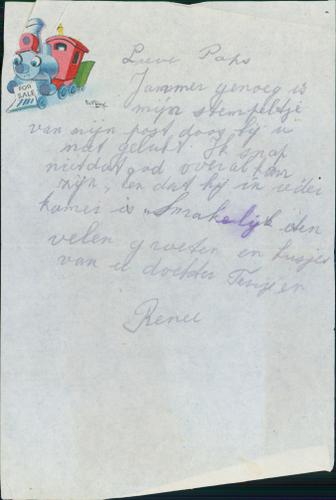 FOR
SALE
Lieve Paps
Jammer genoeg is
mijn stempeltje
van mijn post doos bij u
niet gelukt. Ik snap
niet dat god overal kan
zijn, en dat hij in ieder
kamer is. Smakelijk eten
velen groeten en kusjes
van u dochter
Renee